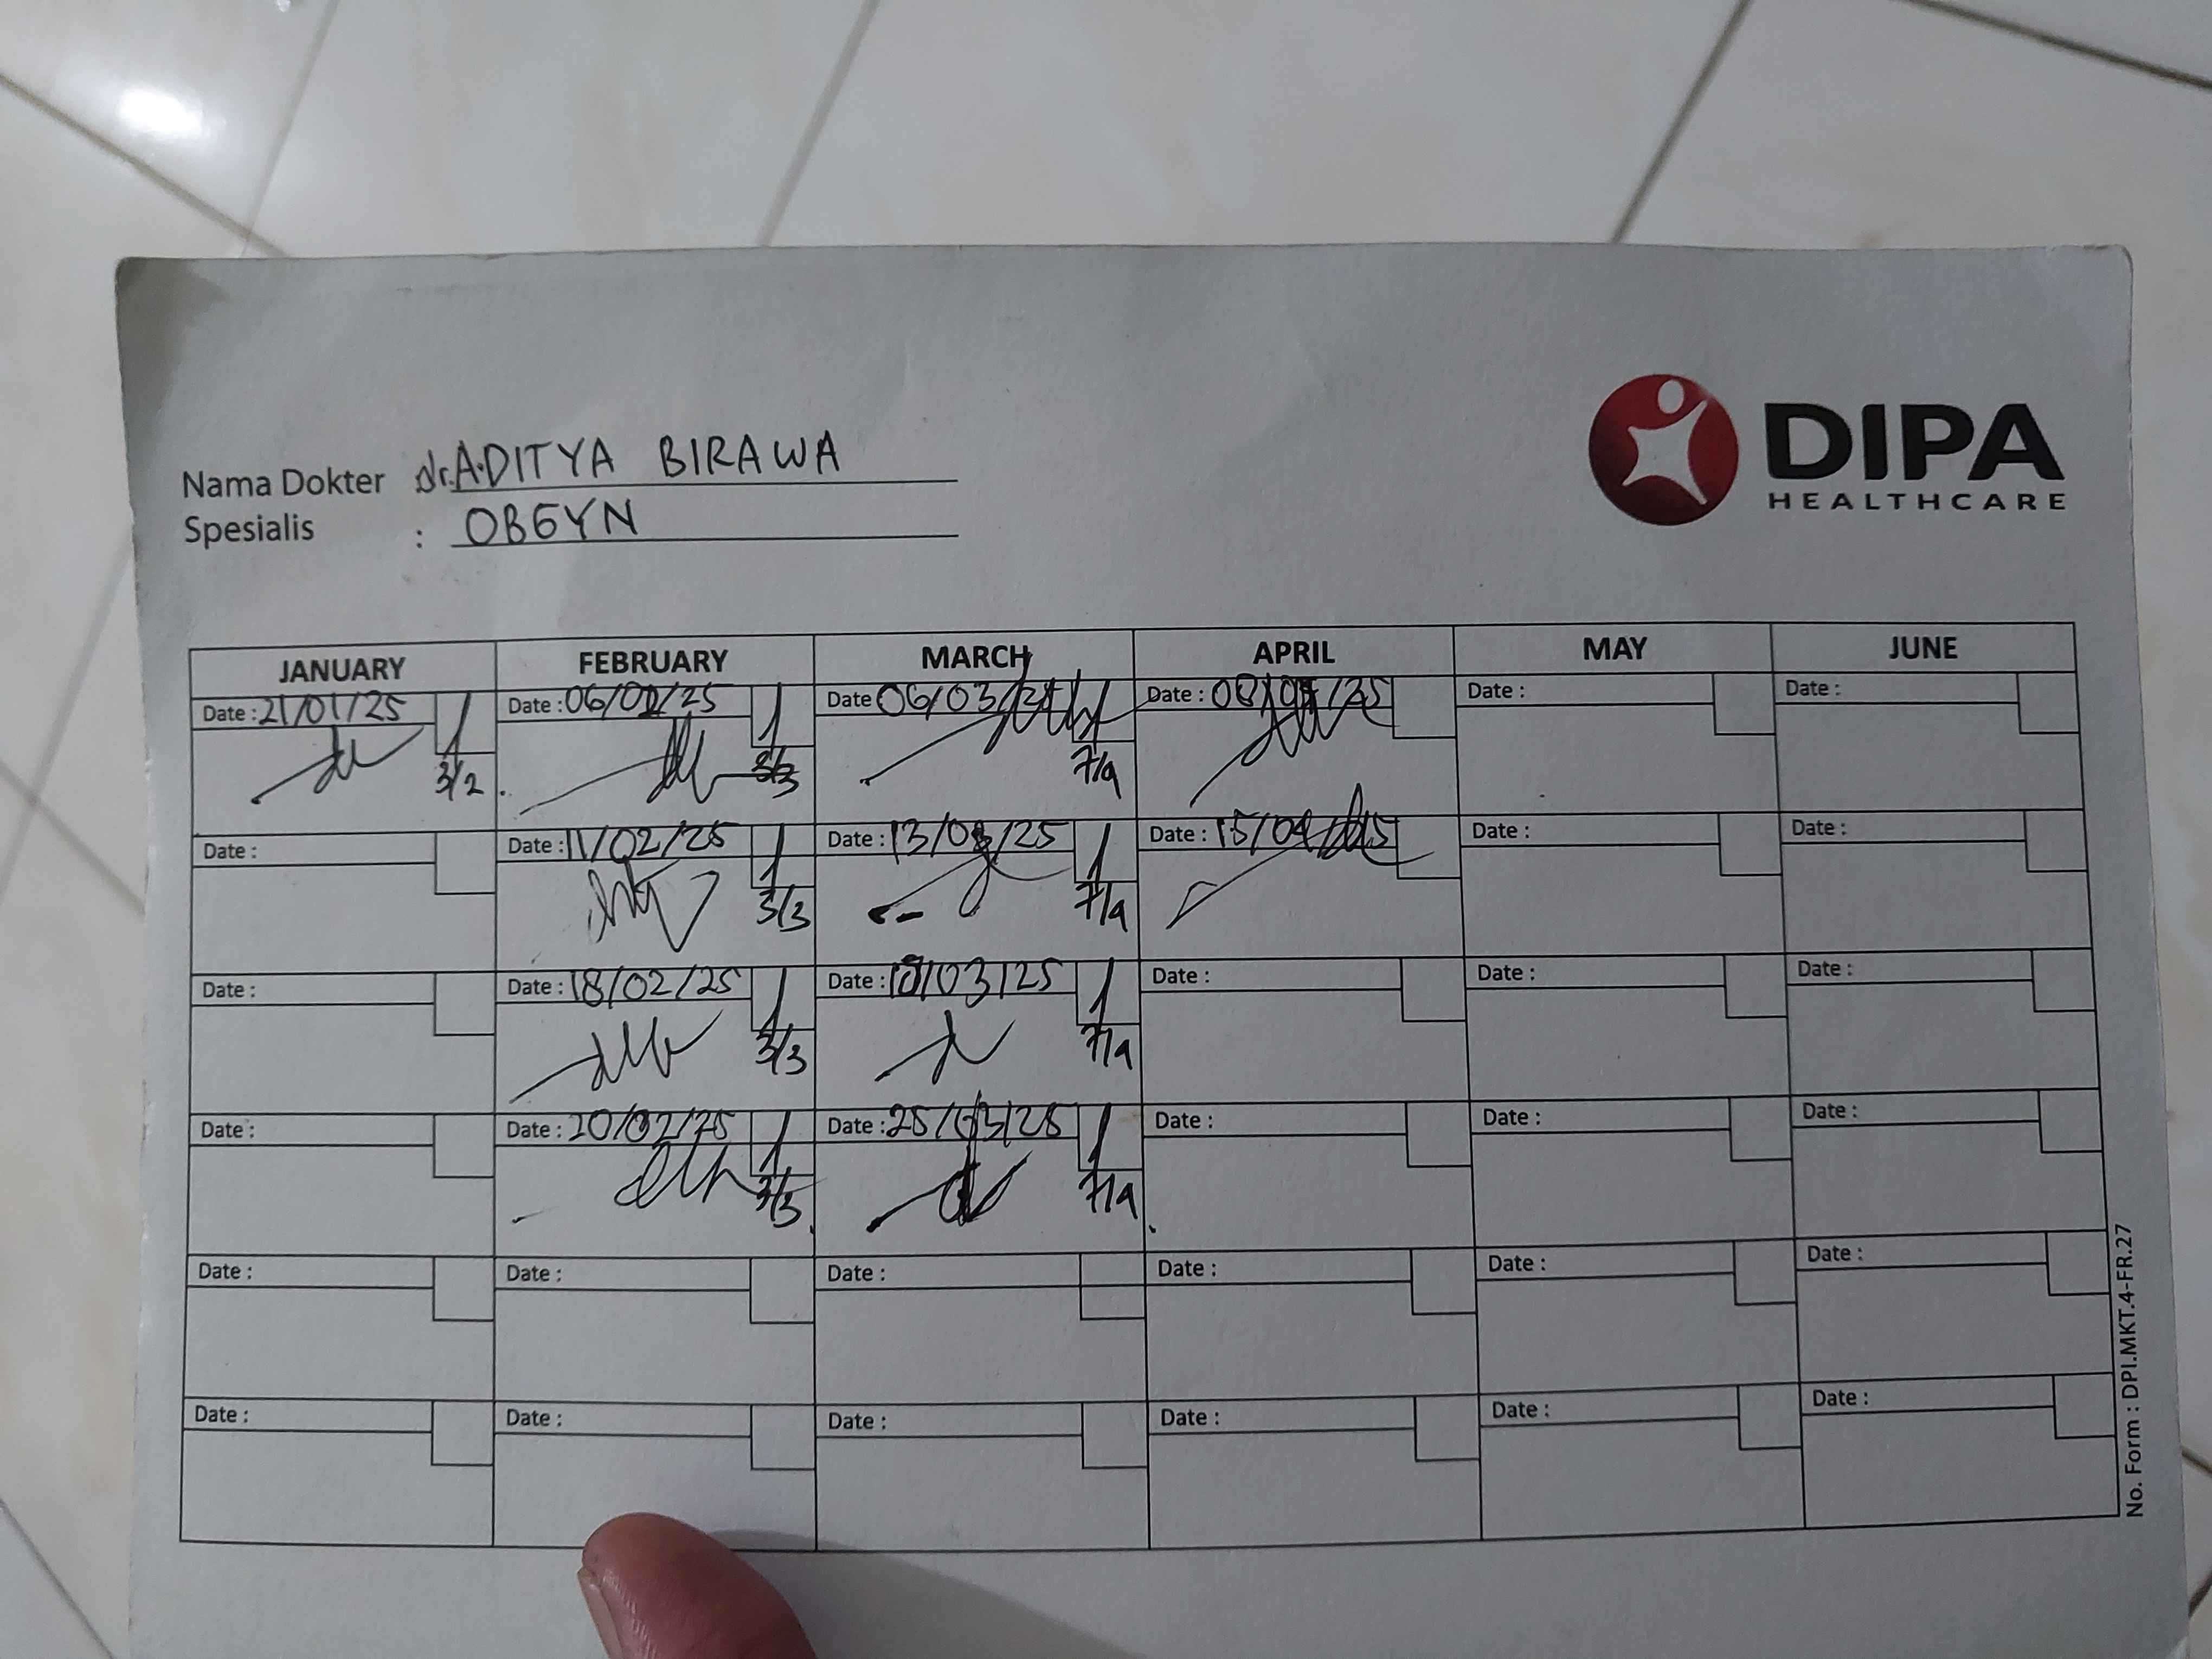 DIPA
HEALTHCARE
Nama Dokter dr. ADITYA BIRAWA
Spesialis : OBGYN
JANUARY FEBRUARY MARCH APRIL MAY JUNE
Date : 21/01/25 Date : 06/02/25 Date 06/03/25 Date : 08/04/25 Date : Date :
3/2 3/3 7/4
Date : Date : 11/02/25 Date : 13/03/25 Date : 15/04/25 Date : Date :
3/3 7/4
Date : Date : 18/02/25 Date : 18/03/25 Date : Date : Date :
3/3 7/4
Date : Date : 20/02/25 Date : 25/03/25 Date : Date : Date :
3/3 7/4
Date : Date : Date : Date : Date : Date :
Date : Date : Date : Date : Date : Date :
No. Form : DPI.MKT.4-FR.27